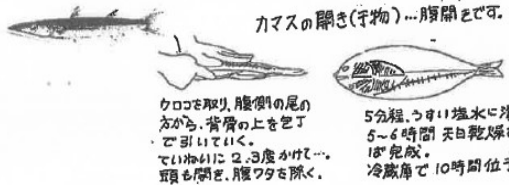 カマスの開き(干物)…腹開きです。
ウロコを取り、腹側の尾の
方から、背骨の上を包丁
で引いていく。
ていねいに2.3度かけて…。
頭も開き、腹ワタを除く。
5分程、うすい塩水に
5~6時間 天日乾燥
ば完成。
冷蔵庫で10時間位